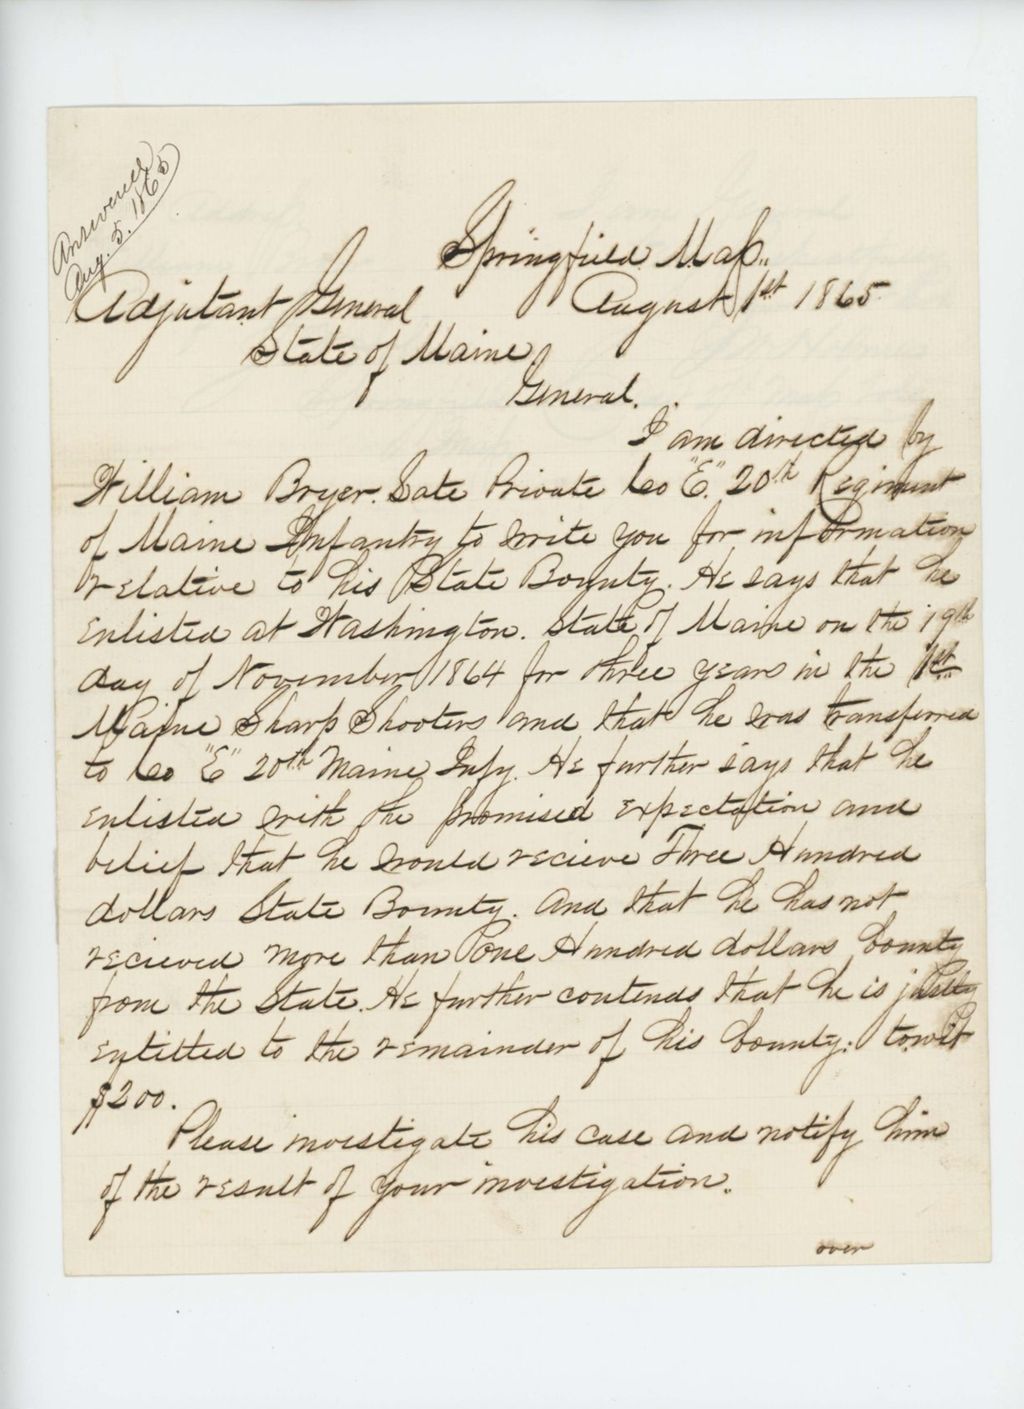 Answered
Aug. 5. 1865
Springfield Mass.
Adjutant General August 1st 1865
State of Maine
General.
I am directed by
William Bryer. Late Private Co "E." 20th Regiment
of Maine Infantry to write you for information
relative to his State Bounty. He says that he
enlisted at Washington. State of Maine on the 19th
day of November 1864 for three years in the 1st
Maine Sharp Shooters and that he was transferred
to Co "E" 20th Maine Infy. He further says that he
enlisted with the promised expectation and
belief that he would recieve Three Hundred
dollars State Bounty. And that he has not
recieved more than One Hundred dollars bounty
from the State. He further contends that he is justly
entitled to the remainder of his bounty: towit
$200.
Please investigate his case and notify him
of the result of your investigation.
over